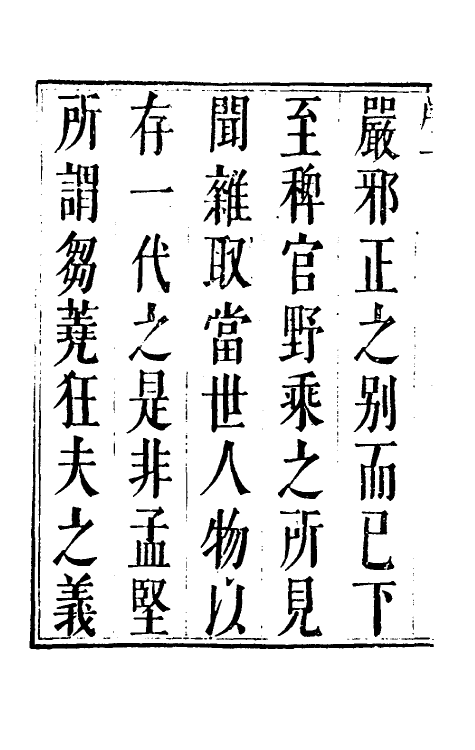 嚴邪正之别而已下
至稗官野乘之所見
聞雜取當世人物以
存一代之是非孟堅
所謂芻蕘狂夫之義